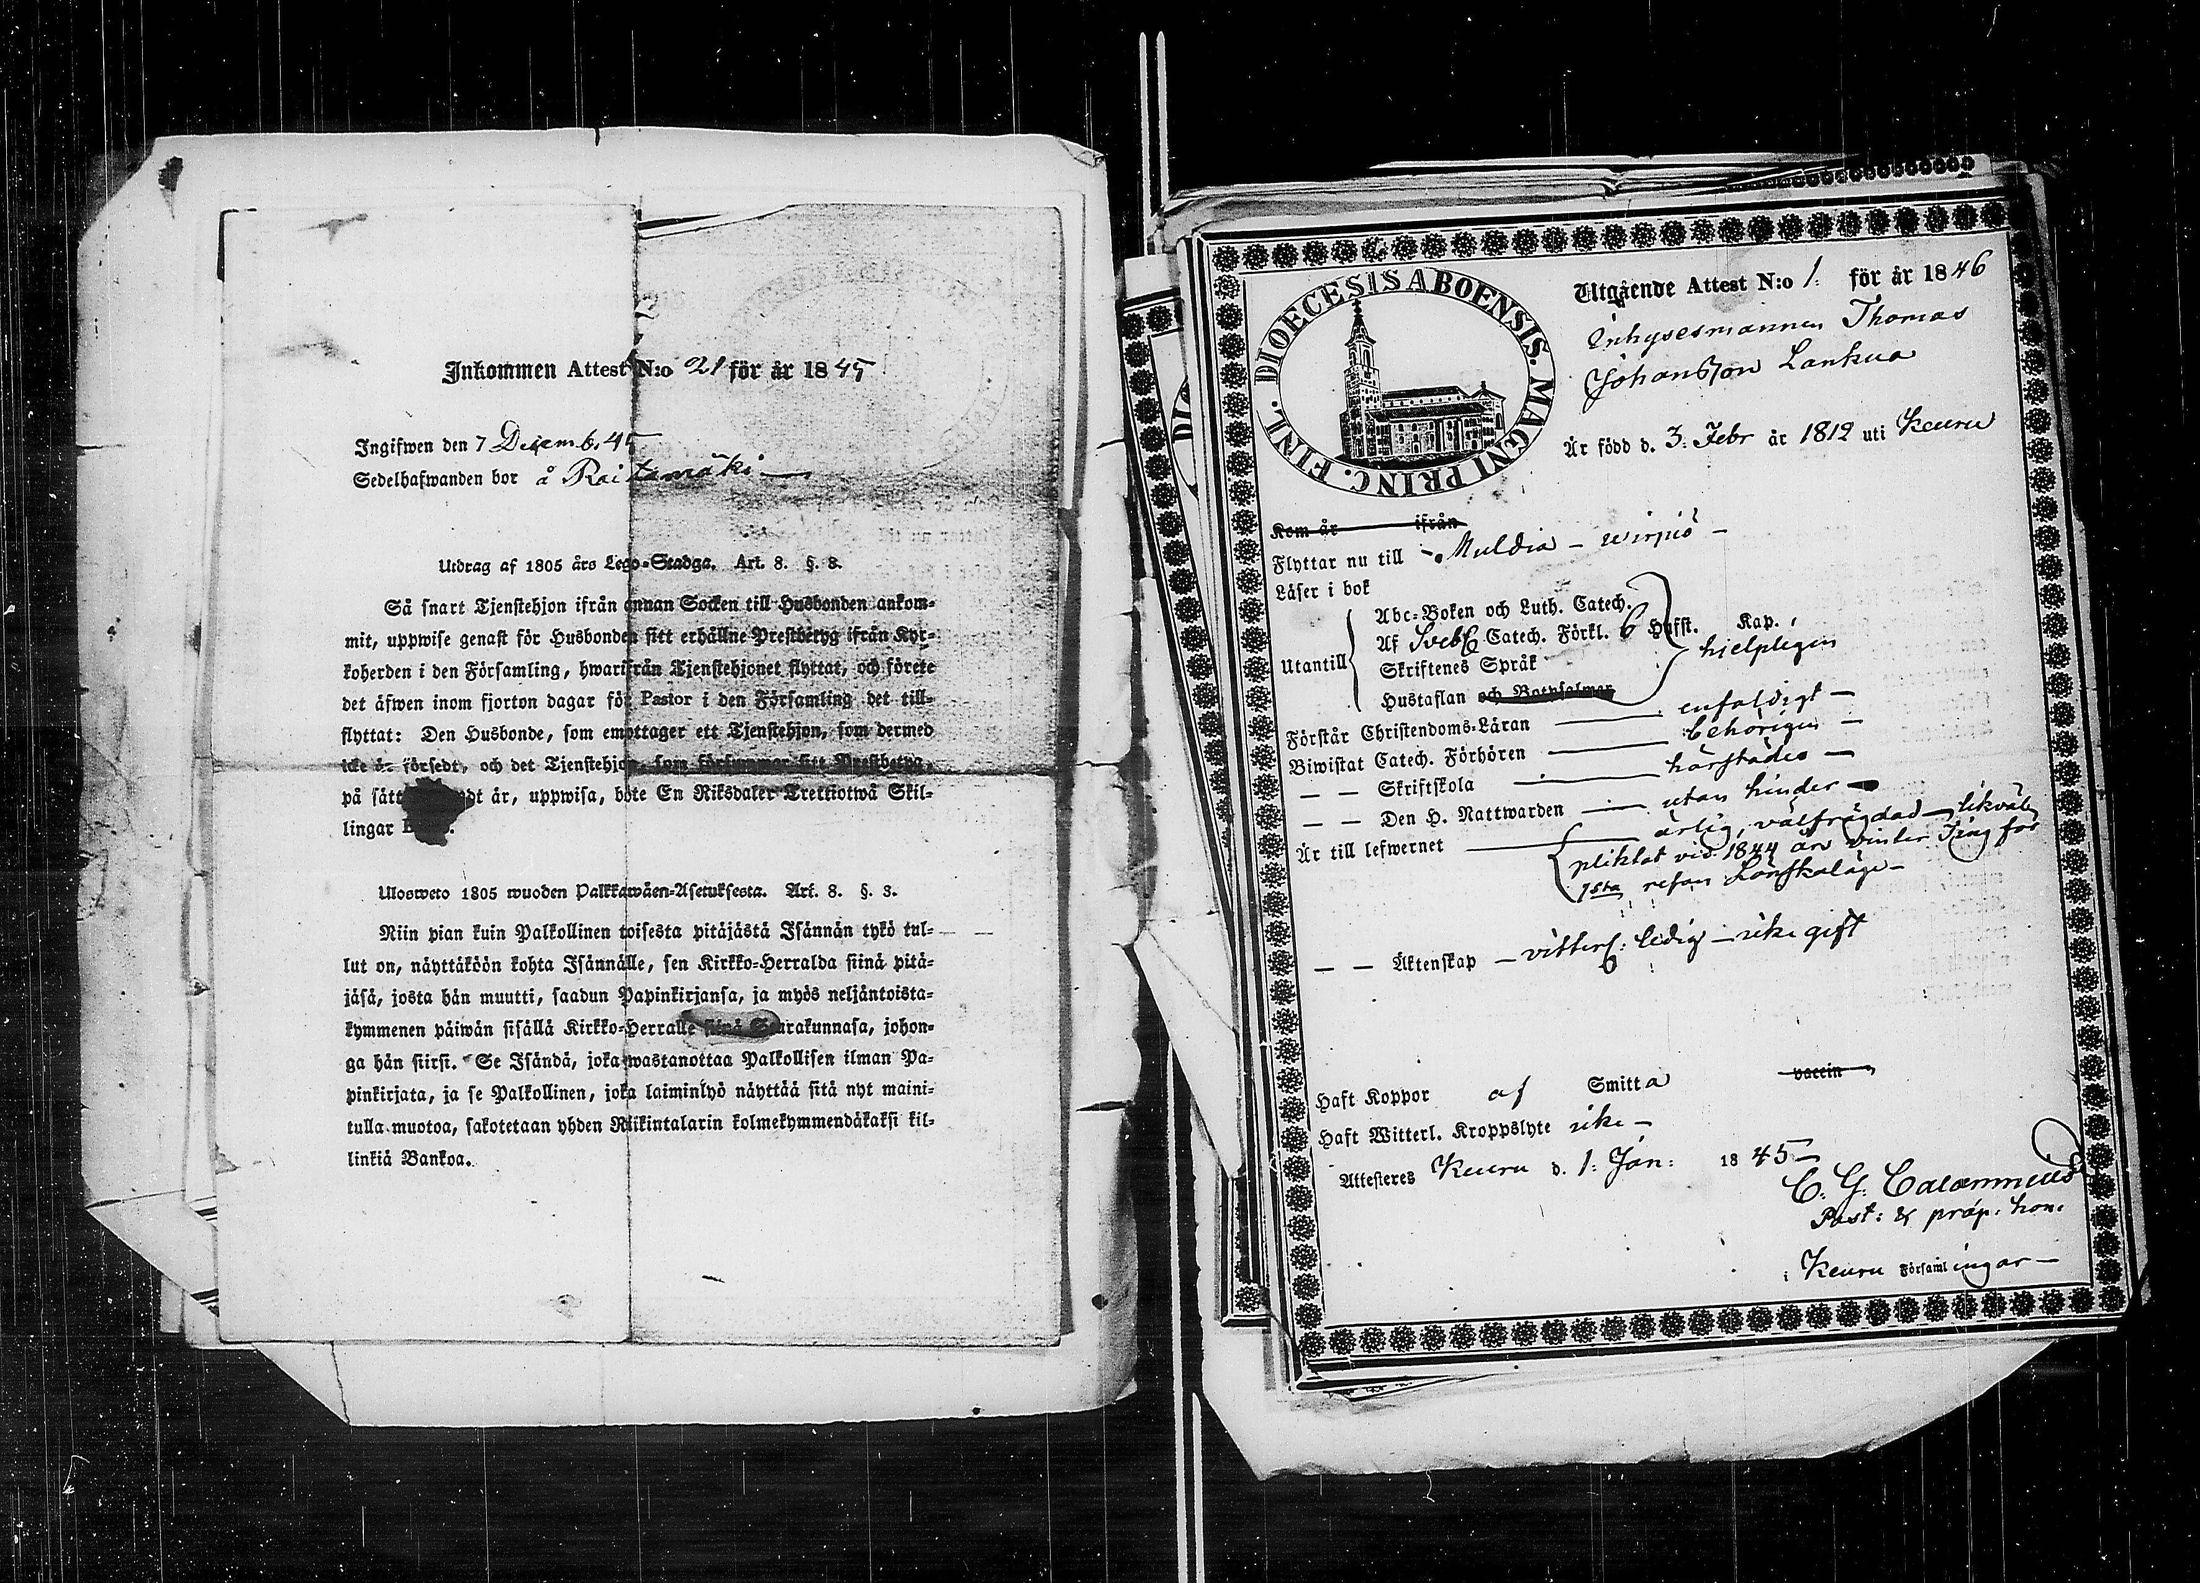 Inkommen Attest N:o 21 för år 1845
Ingifwen den 7 Decemb. 45
Sedelhafwanden bor å Raitamäki —
Utdrag af 1805 års Lego-Stadga. Art. 8. §. 8.
Så snart Tjenstehjon ifrån annan Socken till Husbonden ankom-
mit, uppwise genast för Husbonden sitt erhållne Prestbetyg ifrån Kyr-
koherden i den Församling, hwarifrån Tjenstehjonet flyttat, och förete
det äfwen inom fjorton dagar för Pastor i den Församling det till-
flyttat: Den Husbonde, som emottager ett Tjenstehjon, som dermed
icke är försedt, och det Tjenstehjon, som försummar sitt Prestbetyg,
på sätt är, uppwisa, böte En Riksdaler Trettiotwå Skil-
lingar
Ulosweto 1805 wuoden Palkkawäen-Asetuksesta. Art. 8. §. 3.
Niin pian kuin Palkollinen toisesta pitäjästä Isännän tykö tul-
lut on, näyttäköön kohta Isännälle, sen Kirkko-Herralda siinä pitä-
jäsä, josta hän muutti, saadun Papinkirjansa, ja myös neljäntoista-
kymmenen päiwän sisällä Kirkko-Herralle siinä Seurakunnasa, johon-
ga hän siirsi. Se Isändä, joka wastanottaa Palkollisen ilman Pa-
pinkirjata, ja se Palkollinen, joka laiminlyö näyttää sitä nyt maini-
tulla muotoa, sakotetaan yhden Riikintalarin kolmekymmendäkaksi kil-
linkiä Bankoa.
DIOECESIS ABOENSIS. MAGNI PRINC. FINL.
Utgående Attest N:o 1. för år 1846
Inhysesmannen Thomas
Johansson Lankua
Är född d. 3. Febr år 1812 uti Keuru
Kom år ifrån
Flyttar nu till Muldia —
Läser i bok
Utantill
Abc-Boken och Luth. Catech.
Af Sveb. Catech. Förkl. 6 Hufst. Kap.
Skriftenes Språk hjelpligen
Hustaflan och Botpsalmar
Förstår Christendoms-Läran — enfaldigt —
Biwistat Catech. Förhören — behörigen —
— — Skriftskola — härstädes —
— — Den H. Nattwarden — utan hinder —
Är till lefwernet — ärlig, välfrägdad — likväl
pliktat vid 1844 års Vinter Ting för
1sta resan Lönskaläge —
— — Äktenskap — vitterl: ledig — icke gift
Haft Koppor af Smitta vaccin
Haft Witterl. Kroppslyte icke —
Attesteres Keuru d. 1. Jan: 1845 —
C. G. Calamnius
Past: & præp. hon.
i Keuru Församlingar —